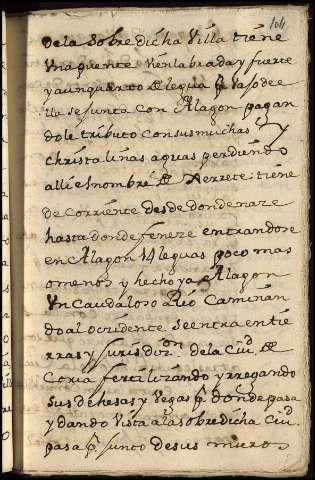 104
de la sobre dicha Villa tiene
Una puente bien labrada y fuerte
y a un querto de legua pr. bajo de e
lla se junta con Alagon pagan
dole tributo con sus muchas y
christalinas aguas perdiendo
alli el nombre de Xerrete: tiene
de corriente desde donde naze
hasta donde feneze entrandose
en Alagon 14 leguas poco mas
o menos y hecho ya Alagon
Un Caudaloso Rio Caminan
do al ocridente se entra en tie
rras y jurisdizon. de la Ciud. de
Coria fertilizando y rregando
sus dehesas y Vegas pr. donde pasa
y dando Vista a la sobre dicha Ciud.
pasa pr. junto de sus muros